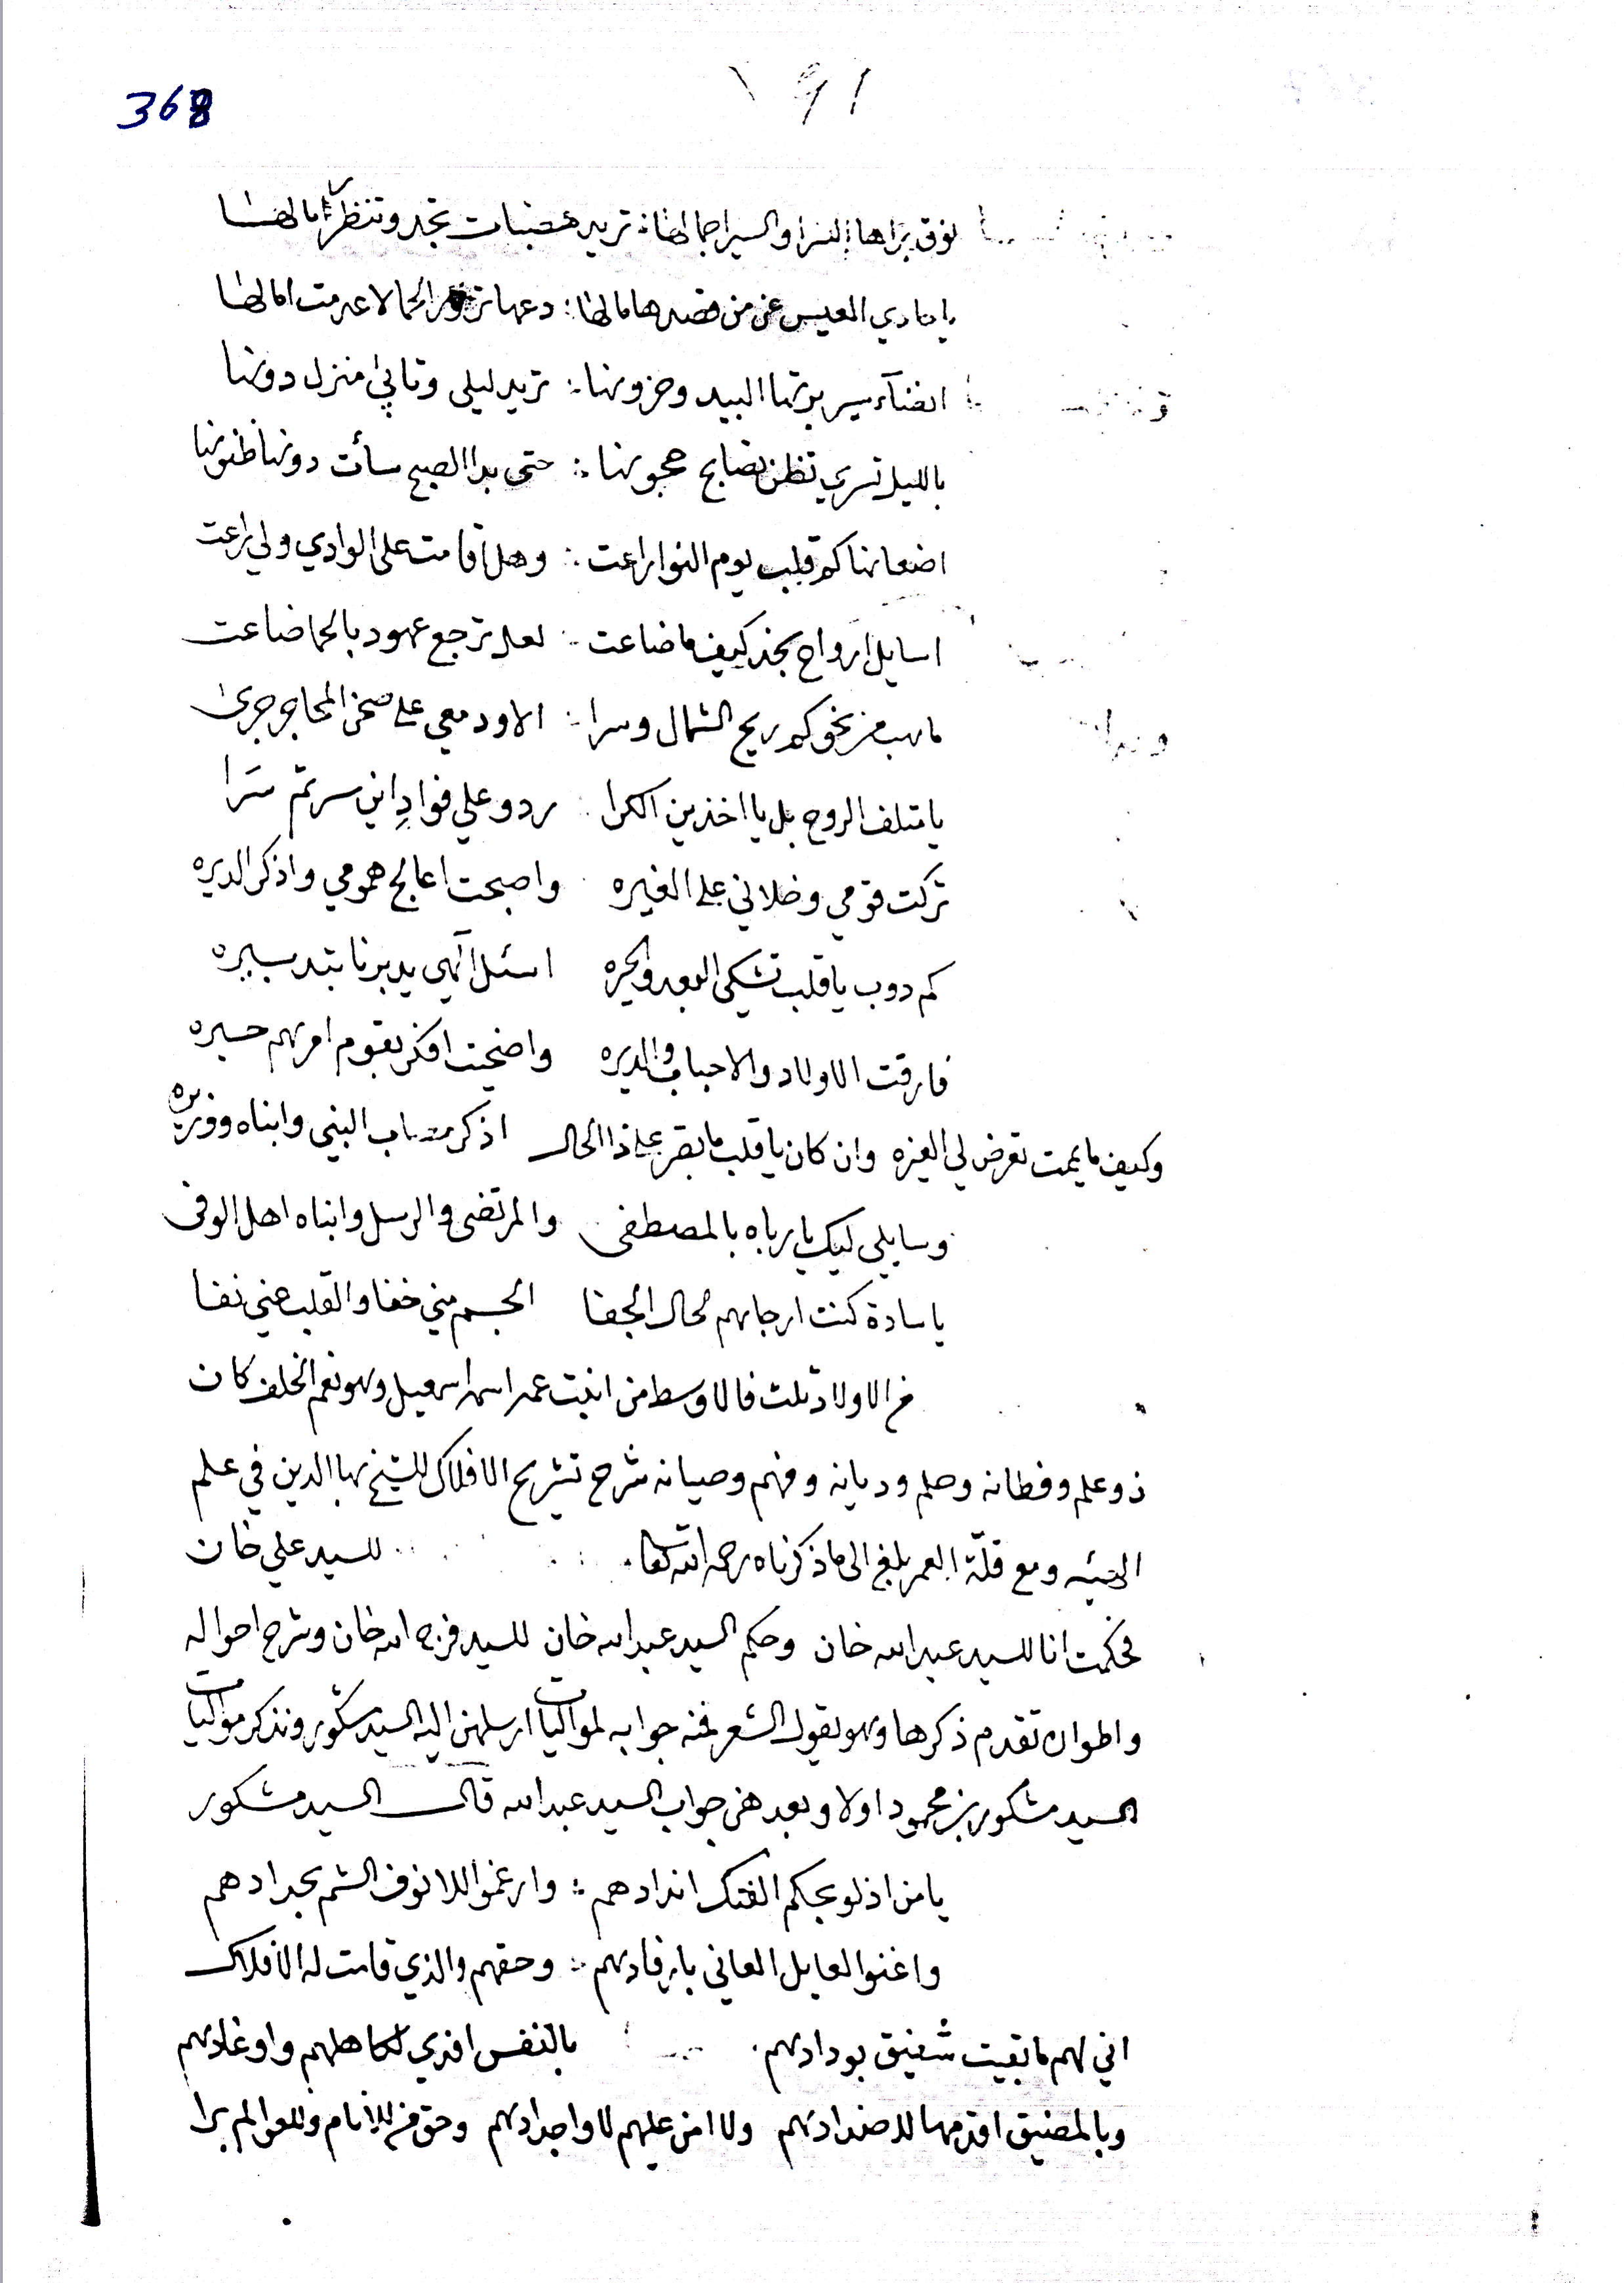 368
١٩١
نوق براها السرا والسير اجمالها : تريد هضبات نجد وتنظر امالها
يا حادي العيس عن من قصدها مالها : دعها تزور الحما لاعدمت امالها
افناء سير برتها البيد وحزونها : تريد ليلى وتابى منزل دونها
بالليل تسري تظن تصابح حجونها : حتى بدا الصبح سأت دونها ظنونها
اضعانها كم قلب يوم النوا راعت : وهل اقامت على الوادي ولي راعت
اسايل ارواح نجد كيف ما ضاعت : لعل ترجع عهود بالحما ضاعت
ما هب من نحوكم ريح الشمال وسرا : الا ودمعي على صحن المحاجر جرى
يا متلف الروح بل يا اخذين الكرا : ردو علي فوادٍ اين سرتم سرا
تركت قومي وخلاني على الغيره واصبحت اعالج همومي واذكر الديره
كم دوب يا قلب تشكي البعد والحيره اسئل الهي يدبرنا بتدبيره
فارقت الاولاد والاحباب والديره واضحيت افكر بقوم امرهم حيره
وكيف ما يمت تعرض لي الغيره وان كان يا قلب ما بقر على ذا الحال اذكر مصاب النبي وابناه ووزيره
وسايلي ليك يا رباه بالمصطفى والمرتضى والرسل وابناه اهل الوفى
يا سادة كنت ارجاهم لحال الجفا الجسم مني خفا والقلب عني نفا
من الاولاد ثلث فالاوسط من ابنت عمه اسمه اسمعيل وهو نعم الخلف كان
ذو علم وفطانه وحلم وديانه وفهم وصيانه شرح تشريح الافلاك للشيخ بها الدين في علم
الهيئه ومع قلّة العمر بلغ الى ما ذكرناه رحمه الله تعالى للسيد علي خان
فحكمت انا للسيد عبد الله خان وحكم السيد عبد الله خان للسيد فرج الله خان وشرح احواله
واطواره تقدم ذكرها وهو يقول الشعر فمنه جوابه لمواليات ارسلهن اليه السيد مشكور ونذكر مواليات
السيد مشكور بن محمود اولا وبعدهن جواب السيد عبد الله قال السيد مشكور
يا من اذلو بحكم الفتك اندادهم : وارغموا للانوف الشم بجدادهم
واغنوا لعايل العاني بارفادهم : وحقهم والذي قامت له الافلاك
اني لهم ما بقيت شفيق بودادهم بالنفس افدي لكاهلهم واوغادهم
وبالمضيق اقدمها لاضدادهم ولا امن عليهم لا واجدادهم وحق من للانام وللعوالم برا